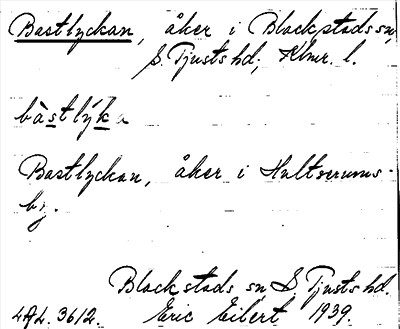 Bastlyckan, åker i Blackstads sn,
S. Tjusts hd; Klmr. l.
bàstlýka
Bastlyckan, åker i Hultserums-
by.
Blackstads sn S. Tjusts hd.
Eric Eilert 1939.